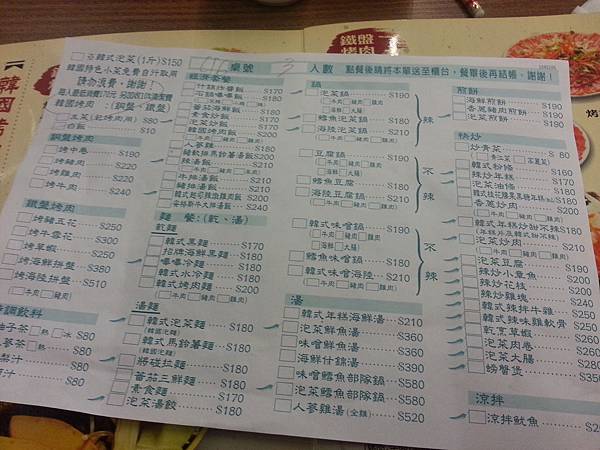 韓式泡菜(1斤)$150
韓國特色小菜免費自行取用
請勿浪費，謝謝！
韓國烤肉 (銅盤、銀盤)
生菜(包烤肉用) $80
白飯 $10
銅盤烤肉
烤中卷 $190
烤豬肉 $220
烤雞肉 $220
烤牛肉 $240
銀盤烤肉
烤豬五花 $250
烤牛雪花 $300
烤草蝦 $250
烤海鮮拼盤 $380
烤海陸拼盤 $510
調飲料
柚子茶 熱 冰 $80
人蔘茶 熱 $80
桌號 3
經濟套餐
什錦炒畚飯 $170
$180
蕃茄海鮮飯 $180
素食炒飯 $170
泡菜炒飯 $170
韓國烤肉飯 $200
牛肉 豬肉 雞肉
人蔘雞 $180
豬軟排馬鈴薯湯飯 $200
辣湯飯 $190
牛肉 豬肉 雞肉
牛排湯飯 $240
豬排湯飯 $200
麵 餐：(乾、湯)
乾麵
韓式黑麵 $170
招牌海鮮黑麵 $180
嘩嘩冷麵 $180
韓式水冷麵 $180
韓式烤肉麵 $200
牛肉 豬肉 雞肉
湯麵
韓式泡菜麵 $180
(韓國泡麵)
韓式馬鈴薯麵 $200
(韓國泡麵)
將校拉麵 $180
蕃茄三鮮麵 $180
素食麵 $180
泡菜湯餃 $180
人數 點餐後請將本單送至櫃台，餐畢後再結帳，謝謝！
鍋
泡菜鍋 $190
牛肉 豬肉 雞肉
海鮮 大腸
鱈魚泡菜鍋 $180
海陸泡菜鍋 $210
牛肉 豬肉 雞肉
辣
豆腐鍋 $190
牛肉 豬肉 雞肉
海鮮 大腸
鱈魚豆腐鍋 $180
海陸豆腐鍋 $210
牛肉 豬肉 雞肉
不辣
韓式味噌鍋 $190
牛肉 豬肉 雞肉
海鮮 大腸
鱈魚味噌鍋 $180
韓式味噌海陸 $210
牛肉 豬肉 雞肉
不辣
湯
韓式年糕海鮮湯 $210
泡菜鮮魚湯 $360
味噌鮮魚湯 $360
海鮮什錦湯 $390
味噌鱈魚部隊鍋 $580
泡菜鱈魚部隊鍋 $580
人蔘雞湯(全雞) $520
煎餅
海鮮煎餅 $190
香蔥豬肉煎餅 $190
泡菜煎餅 $190
精炒
炒青菜 $80
韓式粉條 $160
辣炒年糕 $180
泡菜油條 $180
香蔥炒肉 $200
牛肉 豬肉 雞肉
韓式年糕炒甜不辣 $180
泡菜炒肉 $200
牛肉 豬肉 雞肉
泡菜豆腐 $190
辣炒小章魚 $200
辣炒花枝 $200
辣炒雞塊 $200
韓式辣拌牛雜 $240
韓式辣味雞軟骨 $250
乾烹草蝦 $250
泡菜肉卷 $250
泡菜大腸 $280
螃蟹煲 $350
涼拌
涼拌魷魚
鐵盤
烤肉
韓
國
烤